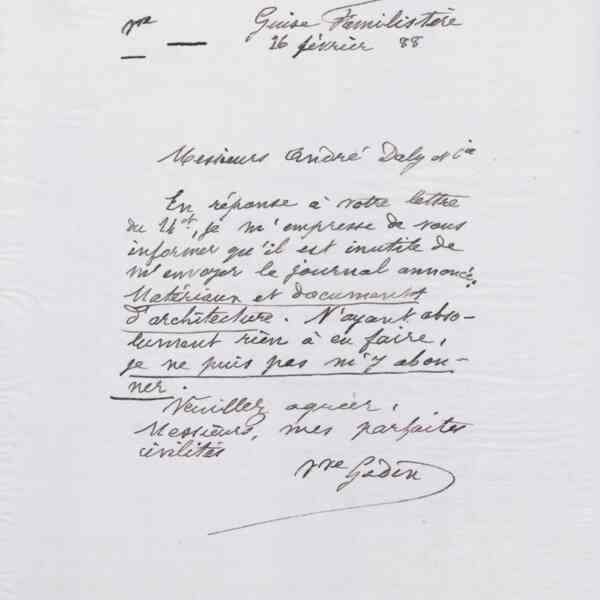 Vve
Guise Familistère
26 février 88
Messieurs André Daly et Cie
En réponse à votre lettre
du 24 ct, je m'empresse de vous
informer qu'il est inutile de
m'envoyer le journal annoncé:
Matériaux et documents
d'architecture. N'ayant abso-
lument rien à en faire,
je ne puis pas m'y abon-
ner.
Veuillez agréer,
Messieurs, mes parfaites
civilités
Vve Godin